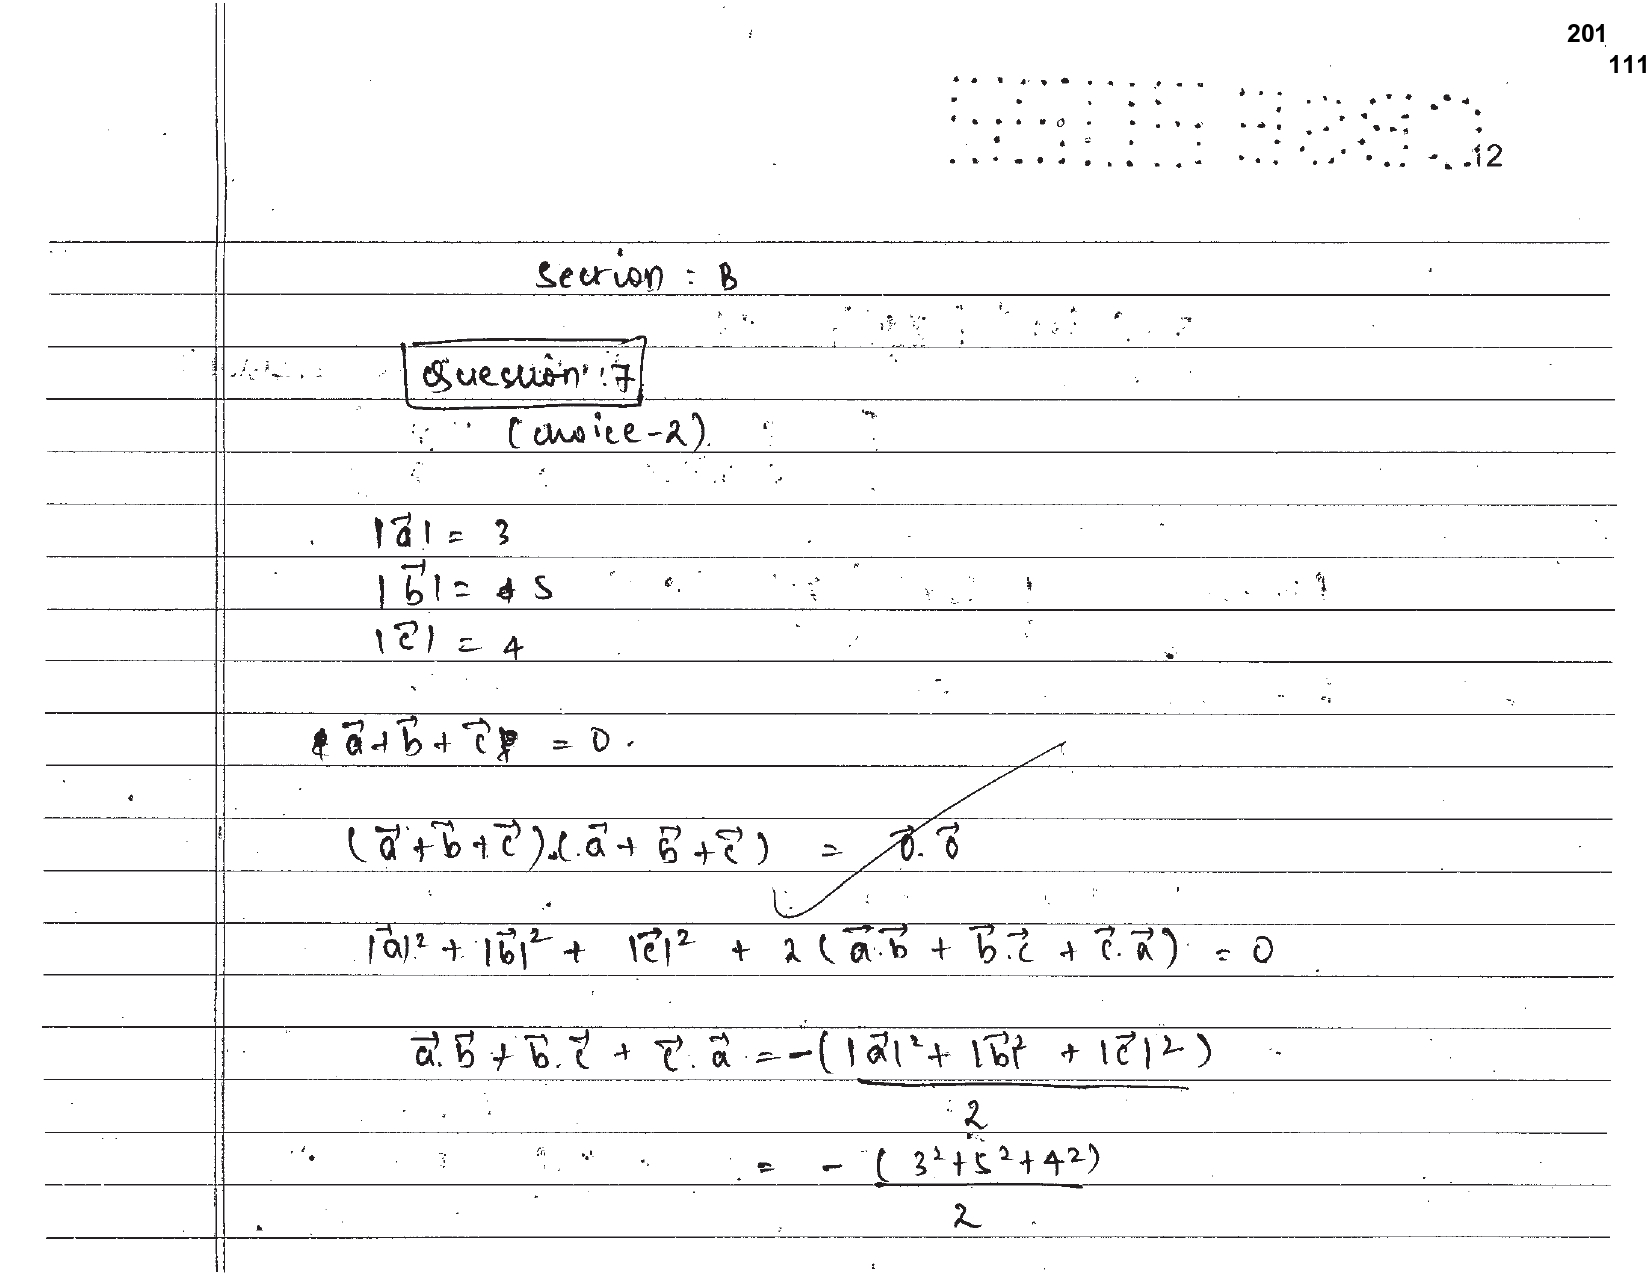 201
111
12
Section : B
Question : 7
(choice-2).
|a⃗| = 3
|b⃗| = 5
|c⃗| = 4
a⃗ + b⃗ + c⃗ = 0.
(a⃗ + b⃗ + c⃗).(a⃗ + b⃗ + c⃗) = 0⃗.0⃗
|a⃗|² + |b⃗|² + |c⃗|² + 2(a⃗.b⃗ + b⃗.c⃗ + c⃗.a⃗) = 0
a⃗.b⃗ + b⃗.c⃗ + c⃗.a⃗ = -(|a⃗|² + |b⃗|² + |c⃗|²)
2
= - (3²+5²+4²)
2